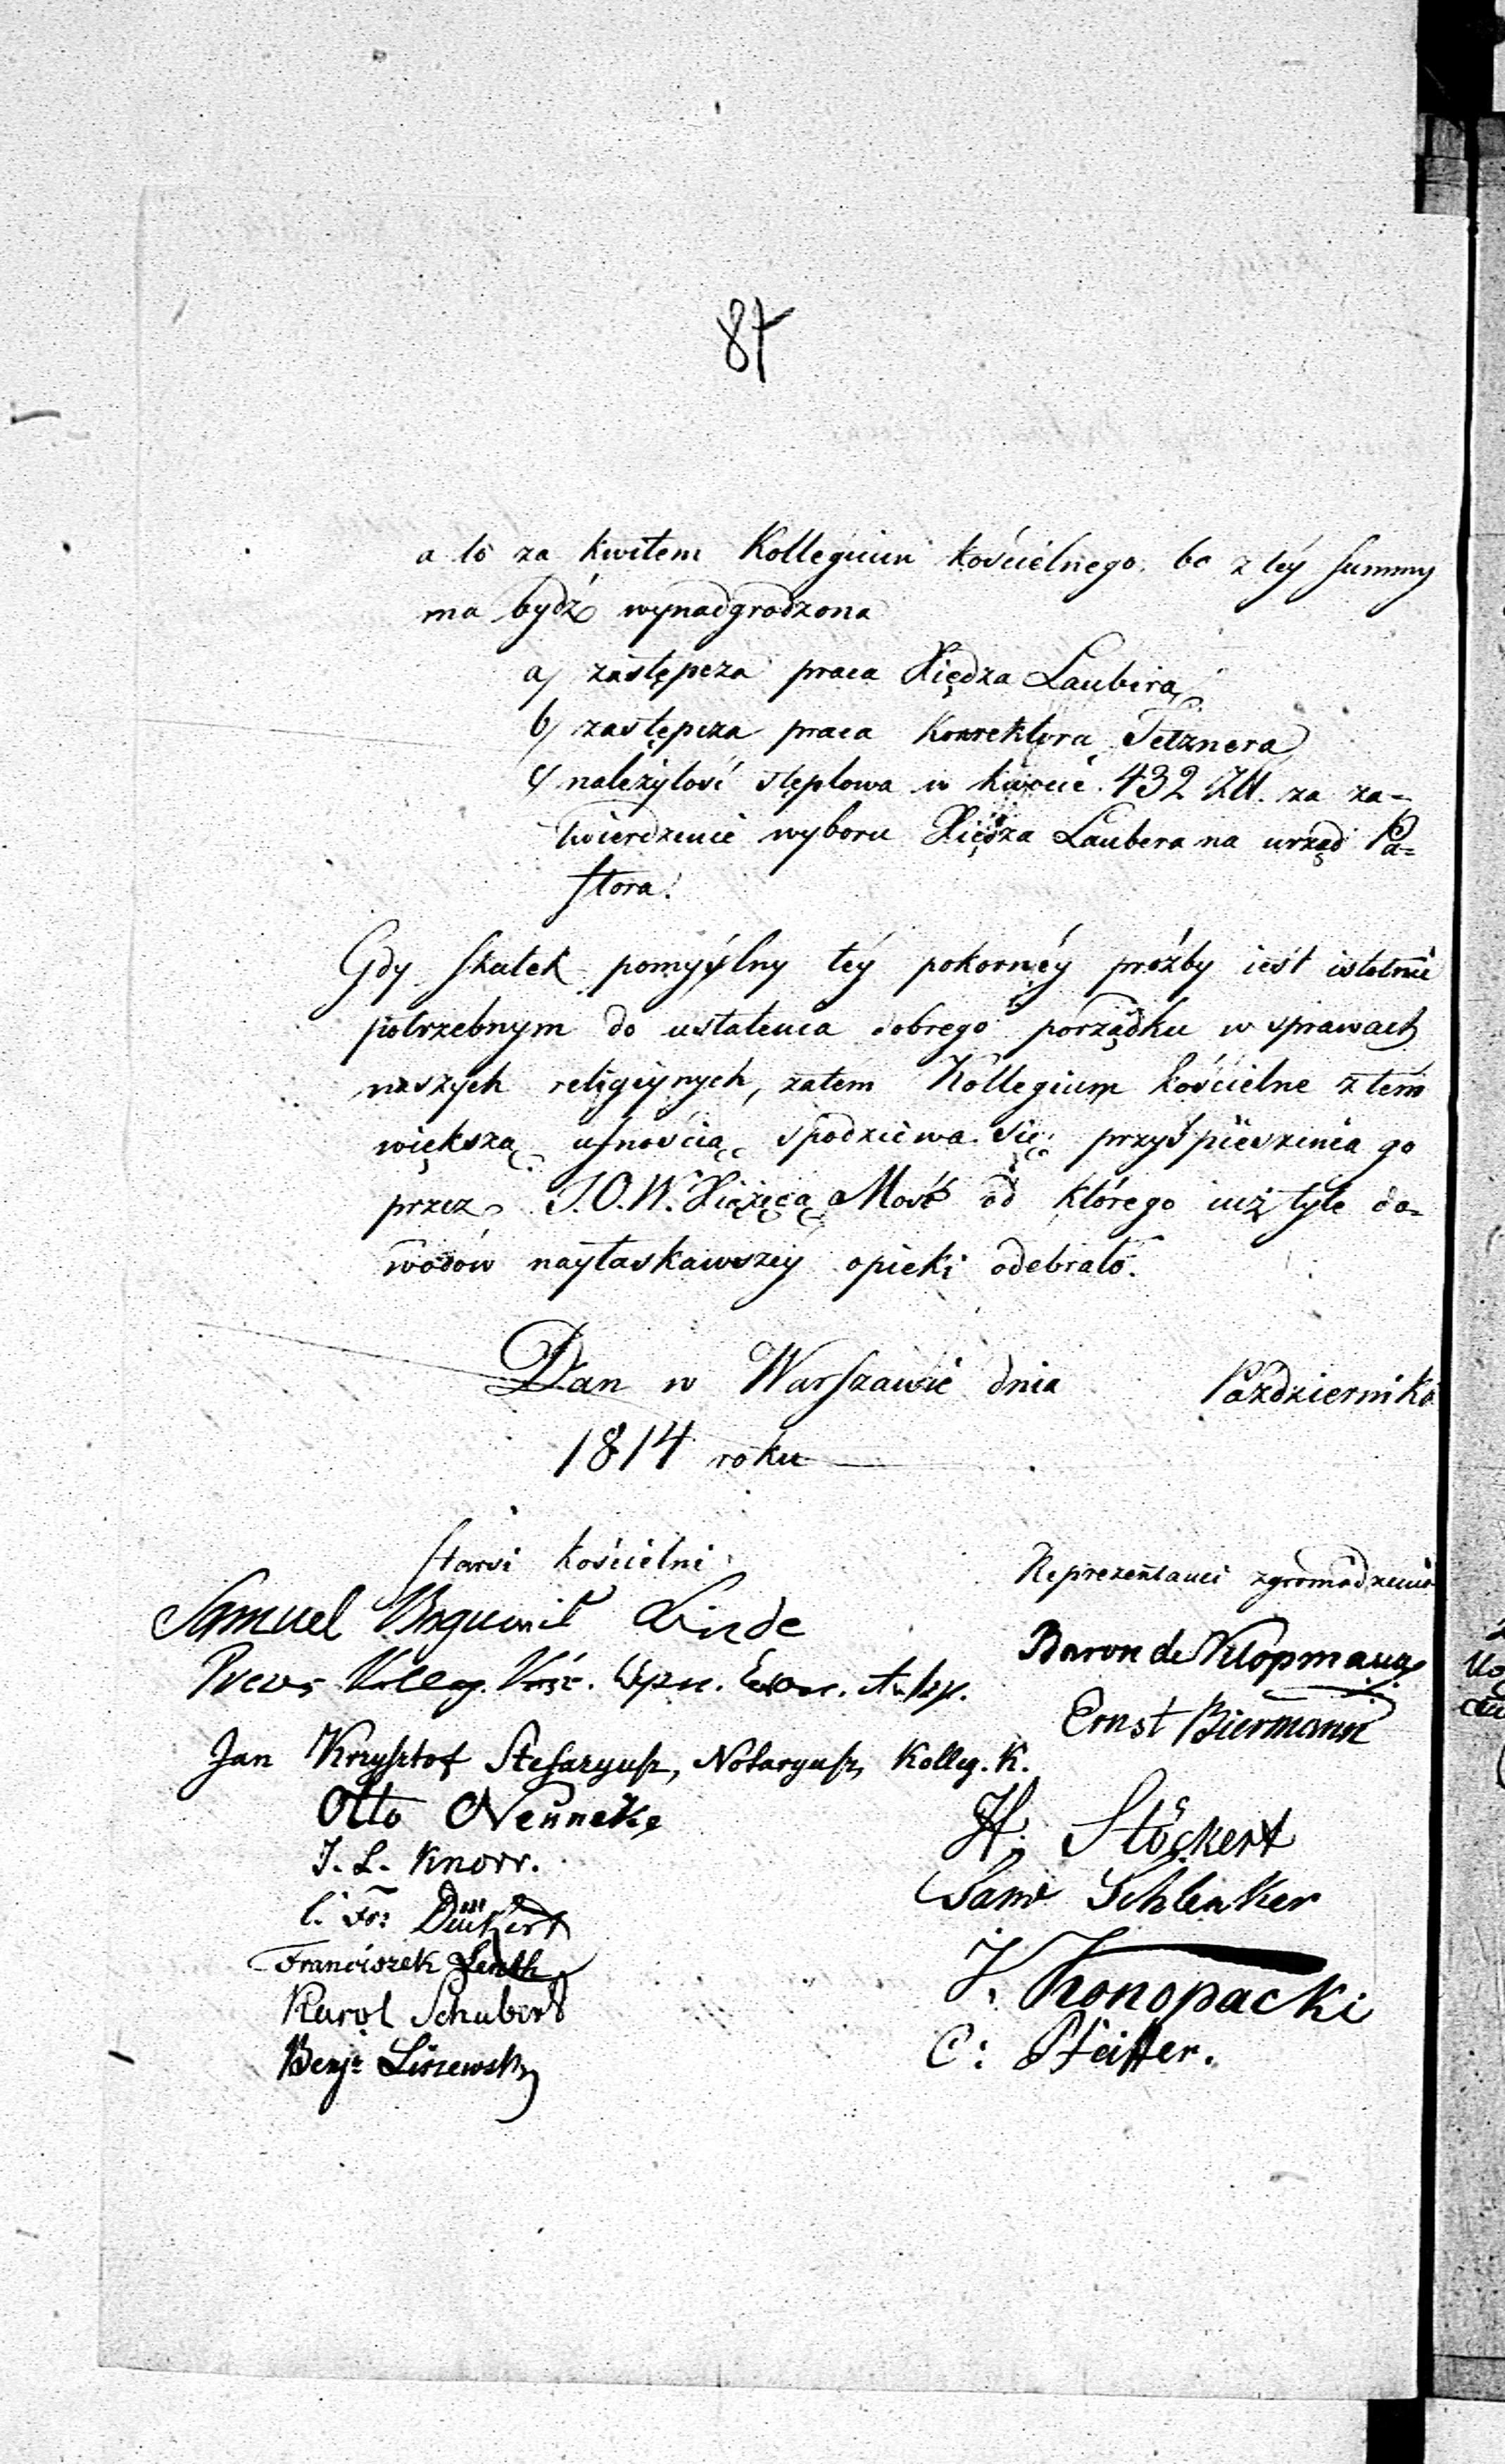 87
a to za kwitem Kollegium kościelnego. bo z téy summy
ma bydź wynadgrodzona
a/ zastępcza praca Xiędza Laubera,
b/ zastępcza praca Konrektora Tetznera,
c/ należytość stęplowa w kwocie 432 Złł. za za=
twierdzenie wyboru Xiędza Laubera na urząd Pa=
stora.
Gdy skutek pomyślny téy pokornéy proźby iest istotnie
potrzebnym do ustalenia dobrego porządku w sprawach
naszych religiynych, zatém Kollegium kościelne z tém
większą ufnością spodziéwa się przyśpieszenia go
przez J.O.W. Xiążęcą Mość od którego iuż tyle do=
wodów nayłaskawszéy opieki odebrało.
Dan w Warszawie dnia Października
1814 roku
starsi kościelni
Samuel Bogumił Linde
Prezes Kolleg. Kość. Ewan. Augsp.
Jan Krzysztof Stefazyusz, Notaryusz Kolleg. K.
Otto Nenneke
J. L. Knorr.
C. Fr: Dückert
Franciszek
Karol Schubert
Benj: Liszewsky
Reprezentanci zgromadzenia
Baron de Klopmann
Ernst Biermann
H: Stöckert
Sam Schlenker
J. Konopacki
C: Pfeiffer.